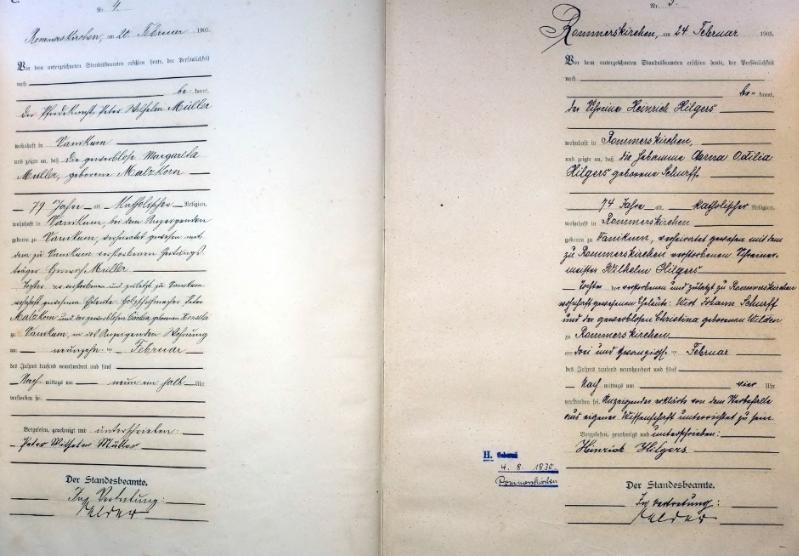 C.
Nr. 4.
Rommerskirchen, am 20 Februar 1905.
Vor dem unterzeichneten Standesbeamten erschien heute, der Persönlichkeit
nach
be-kannt,
der Pferdeknecht Peter Wilhelm Müller
wohnhaft in Vanikum
und zeigte an, daß die gewerblose Margarita
Müller, geborene Matzkorn
79 Jahre alt, katholischer Religion,
wohnhaft in Vanikum, bei dem Anzeigenden
geboren zu Vanikum, verheiratet gewesen mit
dem zu Vanikum verstorbenen
Müller
Tochter der verstorbenen und zuletzt zu Vanikum
wohnhaft gewesenen Eheleute Peter
Matzkorn und der gewerblosen geborenen
zu Vanikum, in des Anzeigenden Wohnung
am Februar
des Jahres tausend neunhundert und fünf
Nachmittags um neun ein halb Uhr
verstorben sei.
Vorgelesen, genehmigt und unterschrieben:
Peter Wilhelm Müller
Der Standesbeamte.
In Vertretung:
Nr. 5.
Rommerskirchen, am 24 Februar 1905.
Vor dem unterzeichneten Standesbeamten erschien heute, der Persönlichkeit
nach
be-kannt,
der Schreiner Heinrich Hilgers
wohnhaft in Rommerskirchen,
und zeigte an, daß die Hebamme Anna Odilia
Hilgers geborene Schurff
74 Jahre alt, katholischer Religion,
wohnhaft in Rommerskirchen
geboren zu Vanikum, verheiratet gewesen mit dem
zu Rommerskirchen verstorbenen Schreiner-
meister Wilhelm Hilgers
Tochter der verstorbenen und zuletzt zu Rommerskirchen
wohnhaft gewesenen Eheleute: Wirt Johann Schurff
und der gewerblosen Christina geborenen Wilden
zu Rommerskirchen
am drei und zwanzigsten Februar
des Jahres tausend neunhundert und fünf
Nachmittags um vier Uhr
verstorben sei. Anzeigender erklärte von dem Sterbefalle
aus eigener Wissenschaft unterrichtet zu sein
Vorgelesen, genehmigt und unterschrieben:
Heinrich Hilgers
Der Standesbeamte.
In Vertretung:
H. Geburt
4. 8. 1830
Rommerskirchen